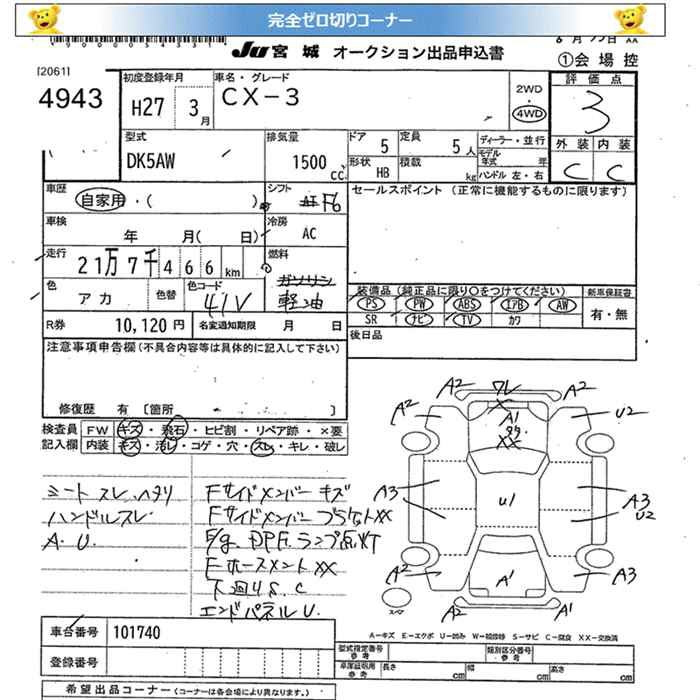 完全ゼロ切りコーナー
JU 宮城 オークション出品申込書
①会場控
[2061]
4943
初度登録年月
H27 3月
車名・グレード
CX-3
2WD
4WD
評価点
3
型式
DK5AW
排気量
1500 cc
ドア 5
定員 5人
ディーラー・並行
モデル年式 年
形状 HB
積載 kg
ハンドル 左・右
外装 内装
C C
車歴
自家用・( )
シフト
F6
セールスポイント (正常に機能するものに限ります)
車検
年 月( 日)
冷房
AC
走行
21万7千466km
燃料
ガソリン
軽油
色
アカ
色替
色コード
41V
装備品 (純正品に限り○をつけてください)
PS PW ABS エアB AW
SR ナビ TV カワ
新車保証書
有・無
R券 10,120円
名変通知期限 月 日
後日品
注意事項申告欄(不具合内容等は具体的に記入して下さい)
修復歴 有 〔箇所 〕
検査員記入欄
FW キズ・飛石・ヒビ割・リペア跡・×要
内装 キズ・汚レ・コゲ・穴・スレ・キレ・破レ
シートスレ、ハタリ
ハンドルスレ
A.U.
Fサイドメンバーキズ
Fサイドメンバーブラケットxx
E/g.DPFランプ点灯
Fホースメントxx
下回りS.C
エンドパネルU.
A2 ワレ A2
A2 A1 U2
xx
A3 U1 A3
U2
A2 A1 A3
A2 A1
スペア
A-キズ E-エクボ U-凹み W-補修跡 S-サビ C-腐食 XX-交換済
車台番号 101740
登録番号
型式指定番号 参考
類別区分番号 参考
車庫証明用 参考
長さ cm
幅 cm
高さ cm
希望出品コーナー (コーナーは各会場により異なります。)